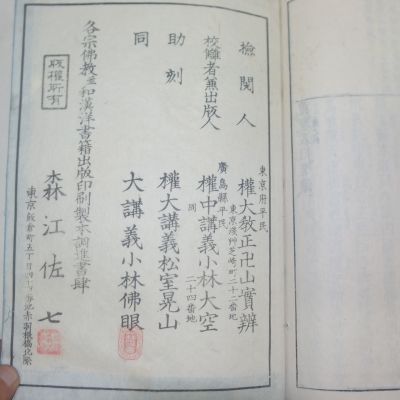 撿閱人
東京府平民
權大敎正卍山實辨
東京淺艸芝崎町二十二畨地
校讎者兼出版人
廣島縣平民
權中講義小林大空
同 二十四畨地
助刻
權大講義松室晃山
同
大講義小林佛眼
各宗佛教並和漢洋書籍出版印刷製本調進書肆
版權所有
森江佐七
東京飯倉町五丁目 赤羽根橋北際